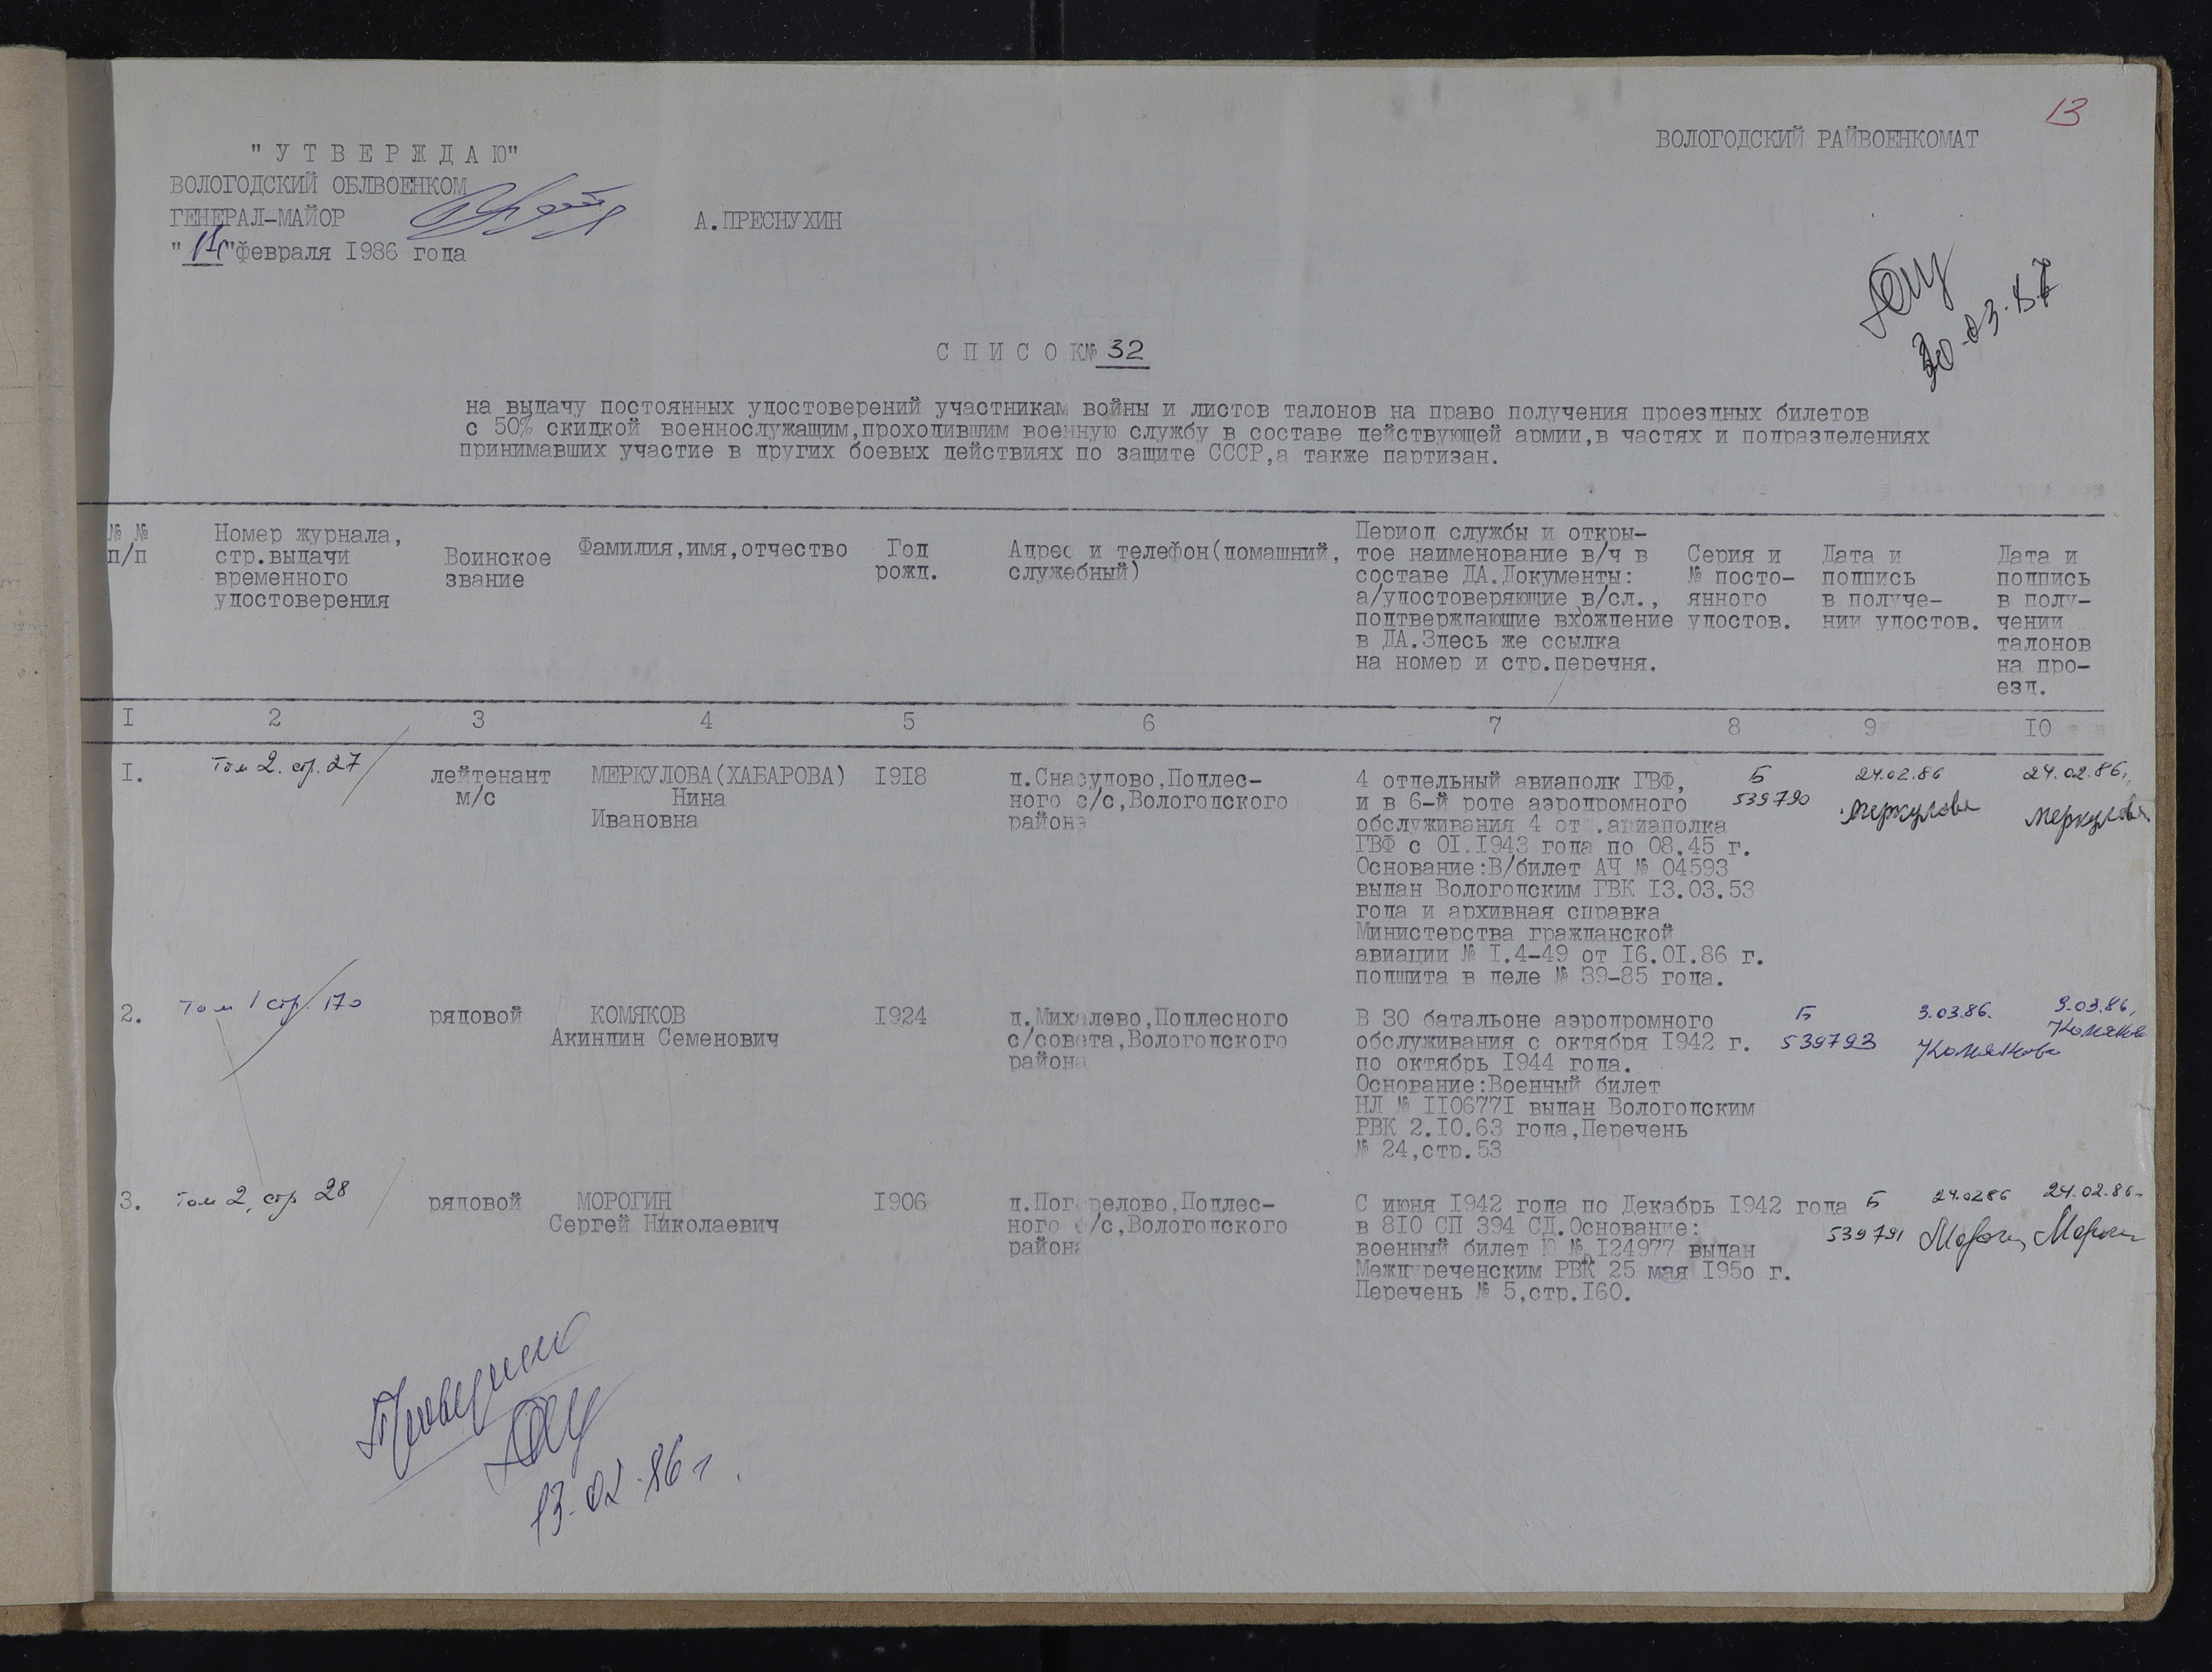 13
ВОЛОГОДСКИЙ РАЙВОЕНКОМАТ
"УТВЕРЖДАЮ"
ВОЛОГОДСКИЙ ОБЛВОЕНКОМ
ГЕНЕРАЛ-МАЙОР А.ПРЕСНУХИН
"14" февраля 1986 года
30.03.87
СПИСОК № 32
на выдачу постоянных удостоверений участникам войны и листов талонов на право получения проездных билетов
с 50% скидкой военнослужащим,проходившим военную службу в составе действующей армии,в частях и подразделениях
принимавших участие в других боевых действиях по защите СССР,а также партизан.
№ № п/п
Номер журнала,
стр.выдачи
временного
удостоверения
Воинское
звание
Фамилия,имя,отчество
Год
рожд.
Адрес и телефон(домашний,
служебный)
Период службы и откры-
тое наименование в/ч в
составе ДА.Документы:
а/удостоверяющие в/сл.,
подтверждающие вхождение
в ДА.Здесь же ссылка
на номер и стр.перечня.
Серия и
№ посто-
янного
удостов.
Дата и
подпись
в получе-
нии удостов.
Дата и
подпись
в полу-
чении
талонов
на про-
езд.
I 2 3 4 5 6 7 8 9 IO
I.
Том 2. стр. 27
лейтенант
м/с
МЕРКУЛОВА(ХАБАРОВА)
Нина
Ивановна
I9I8
д.Снасудово,Подлес-
ного с/с,Вологодского
района
4 отдельный авиаполк ГВФ,
и в 6-й роте аэродромного
обслуживания 4 от .авиаполка
ГВФ с OI.I943 года по 08.45 г.
Основание:В/билет АЧ № 04593
выдан Вологодским ГВК I3.03.53
года и архивная справка
Министерства гражданской
авиации № I.4-49 от I6.OI.86 г.
подшита в деле № 39-85 года.
Б
539790
24.02.86
Меркулова
24.02.86.
Меркулова
2.
Том 1 стр. 170
рядовой
КОМЯКОВ
Акиндин Семенович
I924
д.Михалево,Подлесного
с/совета,Вологодского
района
В 30 батальоне аэродромного
обслуживания с октября I942 г.
по октябрь I944 года.
Основание:Военный билет
НЛ № II0677I выдан Вологодским
РВК 2.IO.63 года,Перечень
№ 24,стр.53
Б
539793
3.03.86.
Комякова
3.03.86.
Комяков
3.
Том 2, стр 28
рядовой
МОРОГИН
Сергей Николаевич
I906
д.Погорелово,Подлес-
ного с/с,Вологодского
района
С июня I942 года по Декабрь I942 года
в 8IO СП 394 СД.Основание:
военный билет Ю № I24977 выдан
Междуреченским РВК 25 мая I95о г.
Перечень № 5,стр.I60.
Б
539791
24.02.86
24.02.86.
Проверил
13.02.86 г.